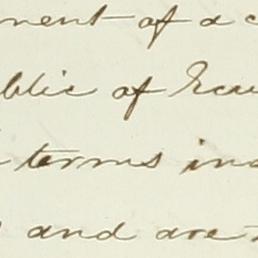 ment of a c
blic of Ecu
terms in
and are